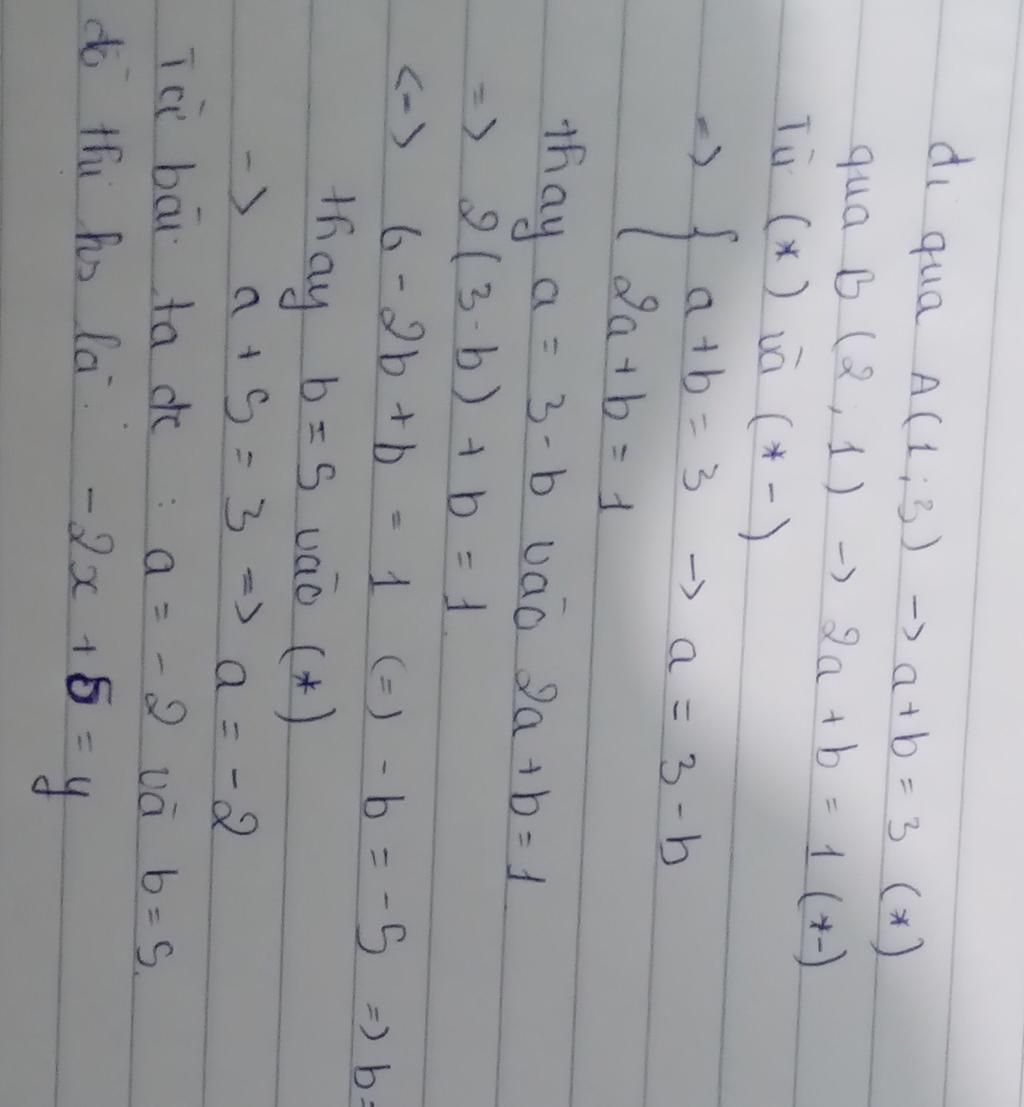 đi qua A(1;3) -> a+b = 3 (*)
qua B (2; 1) -> 2a + b = 1 (*-)
Từ (*) và (*-)
=> { a+b = 3 -> a = 3-b
2a+b = 1
thay a = 3-b vào 2a+b=1
=> 2(3-b) + b = 1
<-> 6-2b+b = 1 (=) -b = -5 => b=
thay b = 5 vào (*)
-> a + 5 = 3 => a = -2
Từ bài ta đc : a = -2 và b = 5
đồ thị hs là: -2x + 5 = y